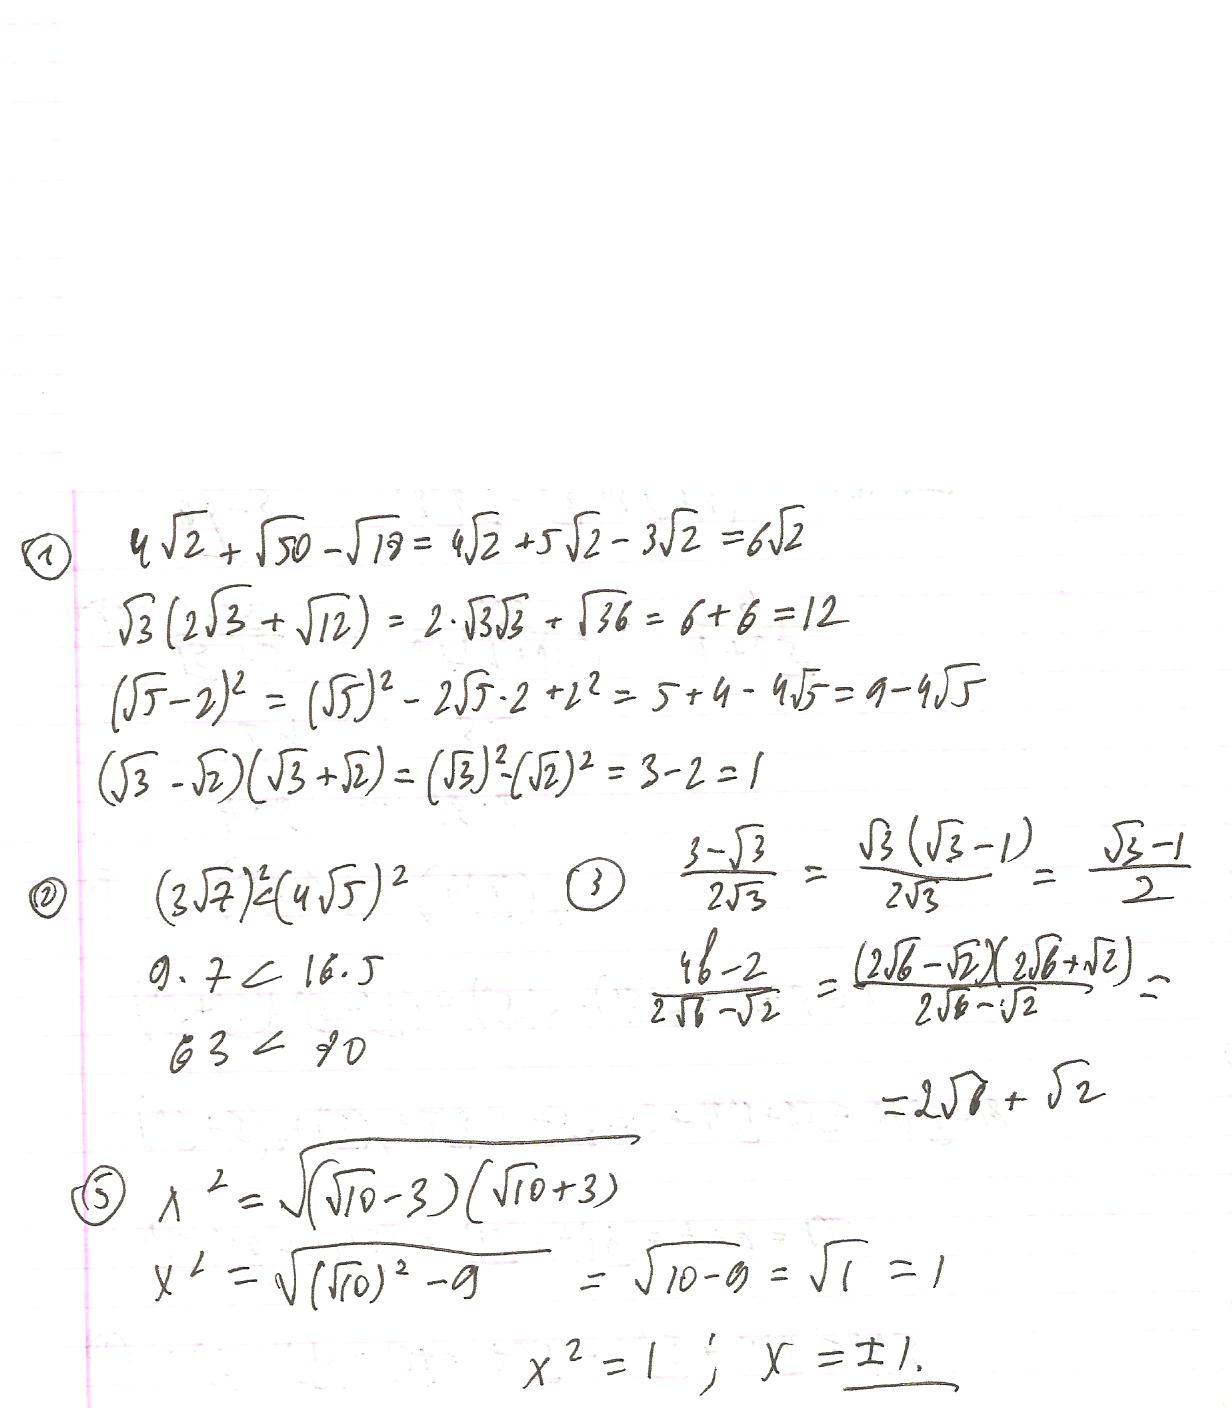 ① 4√2 + √50 - √18 = 4√2 + 5√2 - 3√2 = 6√2
√3(2√3 + √12) = 2·√3√3 + √36 = 6 + 6 = 12
(√5 - 2)² = (√5)² - 2√5·2 + 2² = 5 + 4 - 4√5 = 9 - 4√5
(√3 - √2)(√3 + √2) = (√3)² - (√2)² = 3 - 2 = 1
② (3√7)² < (4√5)²
9·7 < 16·5
63 < 80
③ (3 - √3)/(2√3) = √3(√3 - 1)/(2√3) = (√3 - 1)/2
/(2√6 - √2) = (2√6 - √2)(2√6 + √2)/(2√6 - √2) =
= 2√6 + √2
⑤ x² = √((√10 - 3)(√10 + 3))
x² = √((√10)² - 9) = √(10 - 9) = √1 = 1
x² = 1 ; x = ±1.